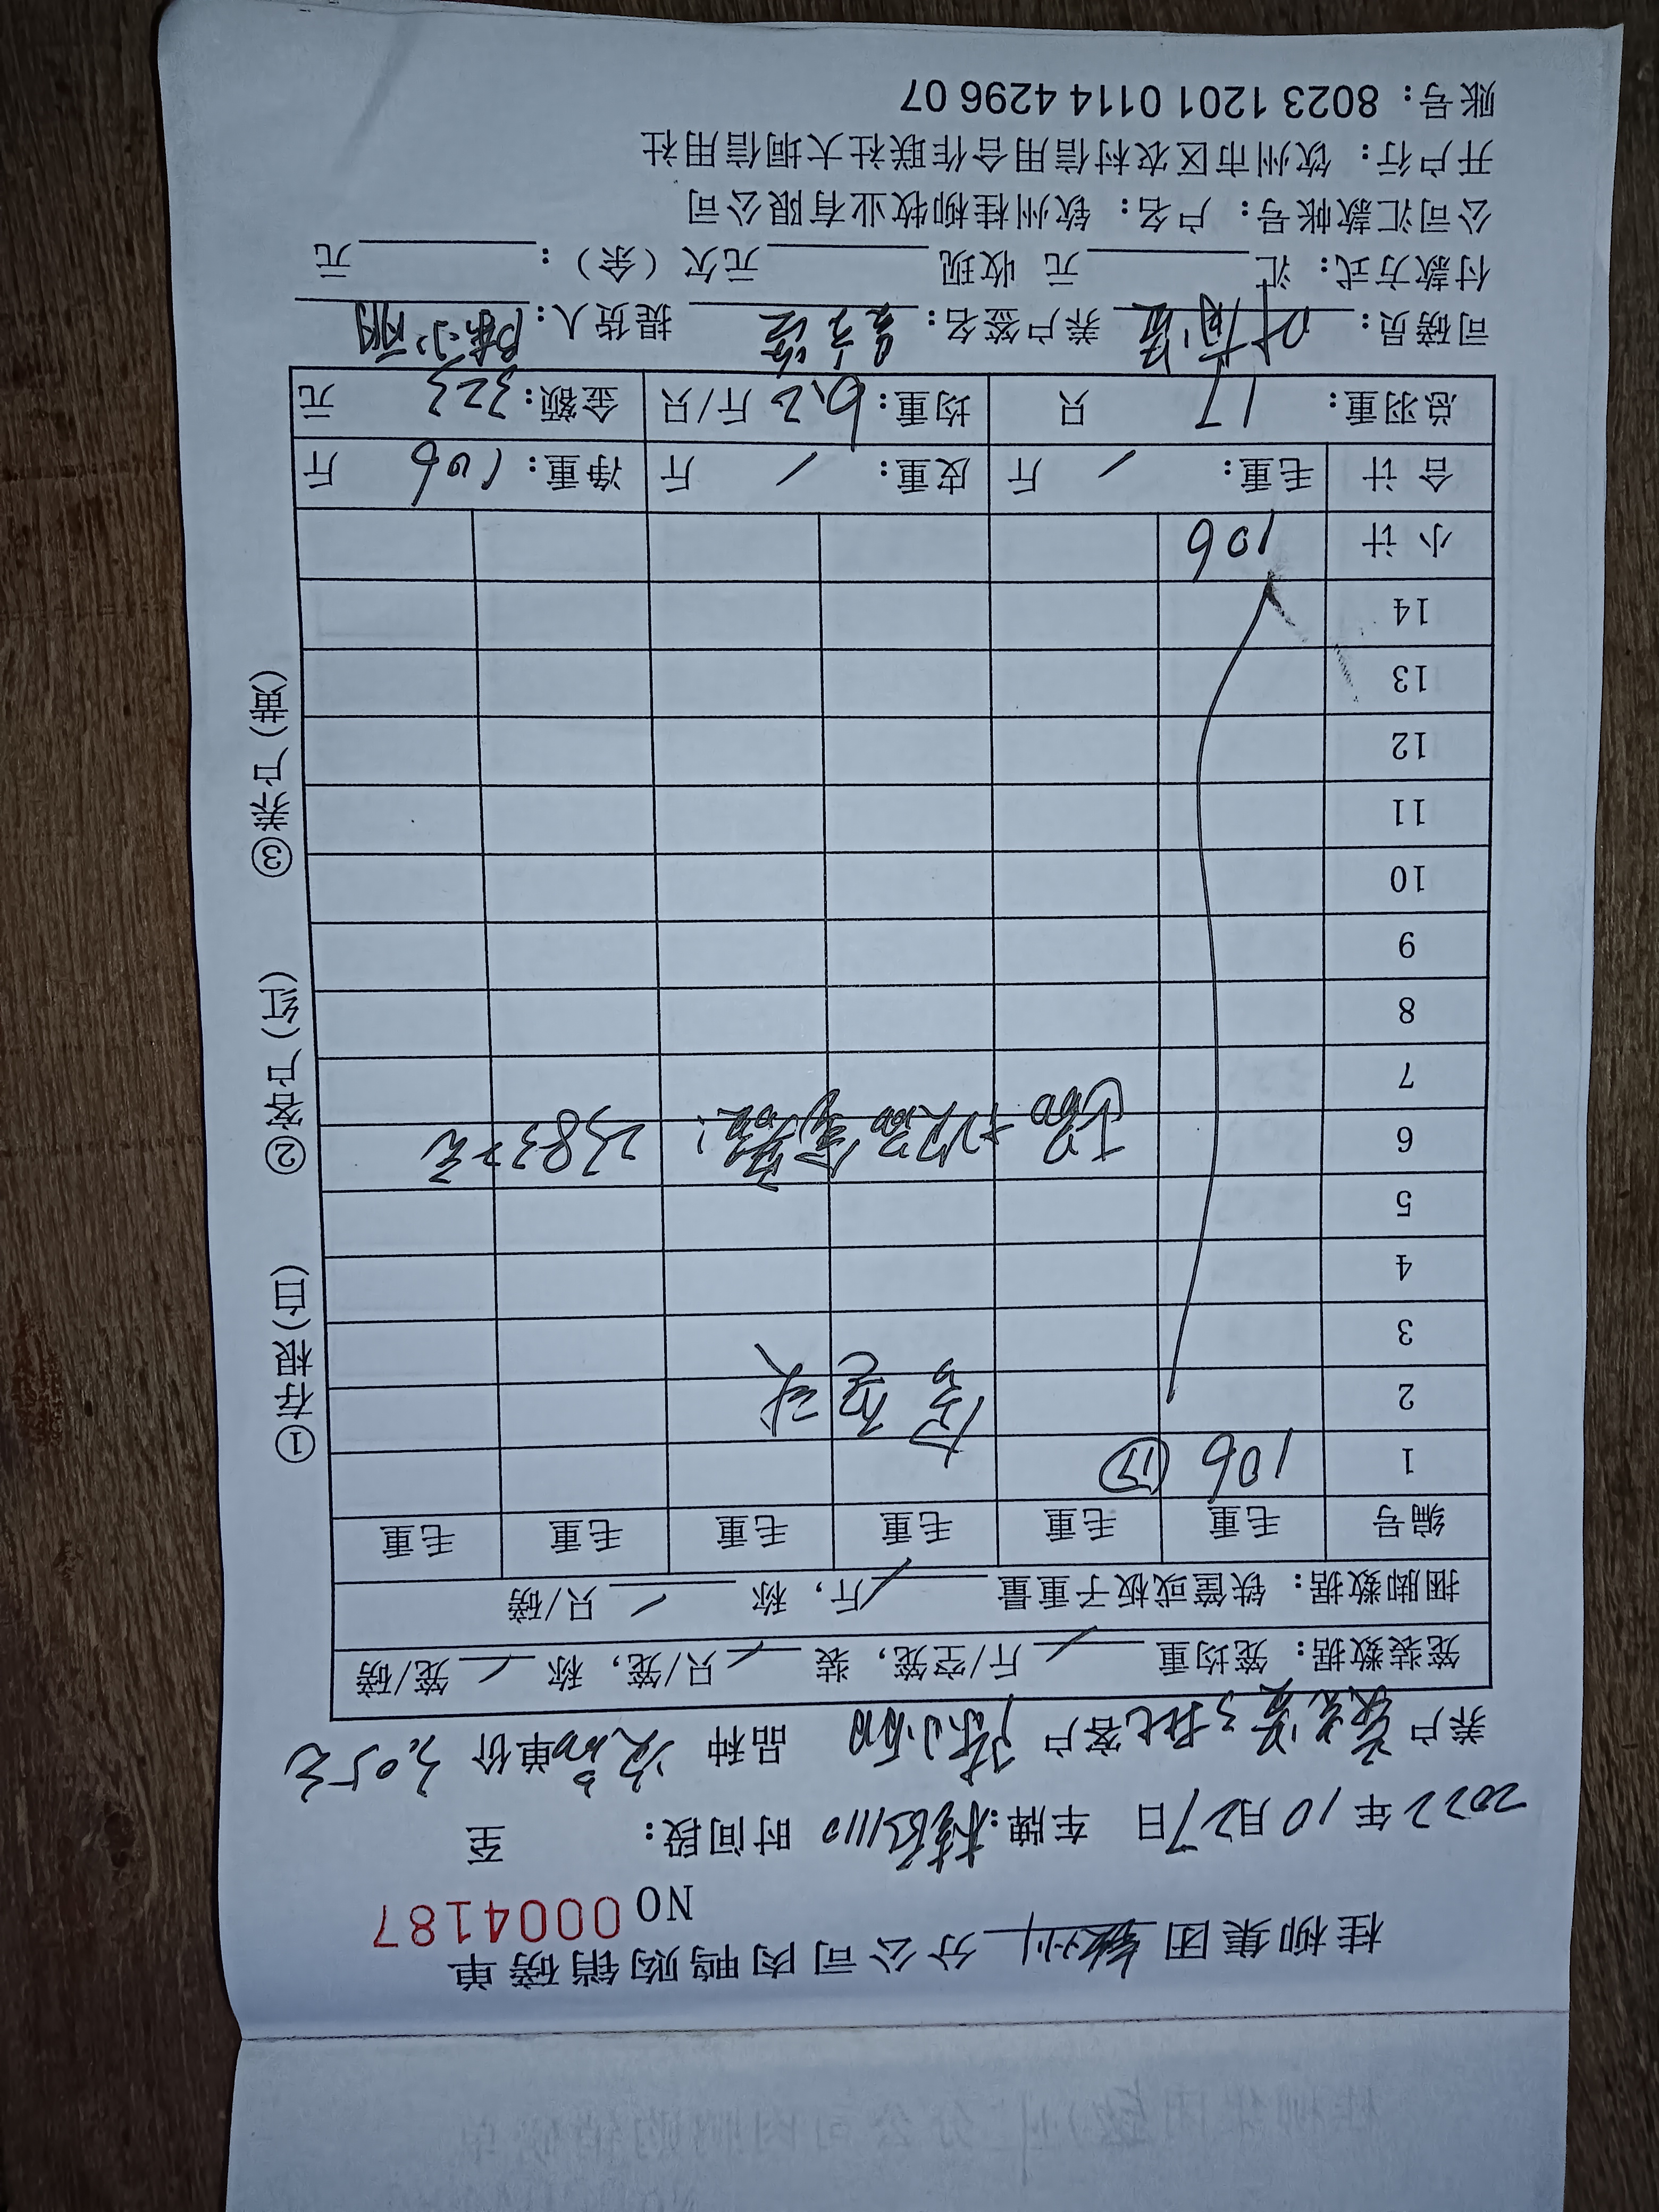 桂柳集团钦州分公司肉鸭购销磅单
NO 0004187
2022年10月27日 车牌: 时间段: 至
养户 客户 陈小丽 品种 次品 单价 3.05元
笼装数据: 笼均重 / 斤/空笼, 装 / 只/笼, 称 / 笼/磅
捆脚数据: 铁筐或板子重量 / 斤, 称 / 只/磅
编号 毛重 毛重 毛重 毛重 毛重 毛重
1 106 (17)
2
3
4
5
6 23832元
7
8
9
10
11
12
13
14
小计 106
合计 毛重: / 斤 皮重: / 斤 净重: 106 斤
总羽重: 17 只 均重: 6.2 斤/只 金额: 323 元
司磅员: 养户签名: 提货人: 陈小丽
付款方式: 汇 元 收现 元欠(余): 元
公司汇款帐号: 户名: 钦州桂柳牧业有限公司
开户行: 钦州市区农村信用合作联社大垌信用社
账号: 8023 1201 0114 4296 07
①存根(白) ②客户(红) ③养户(黄)